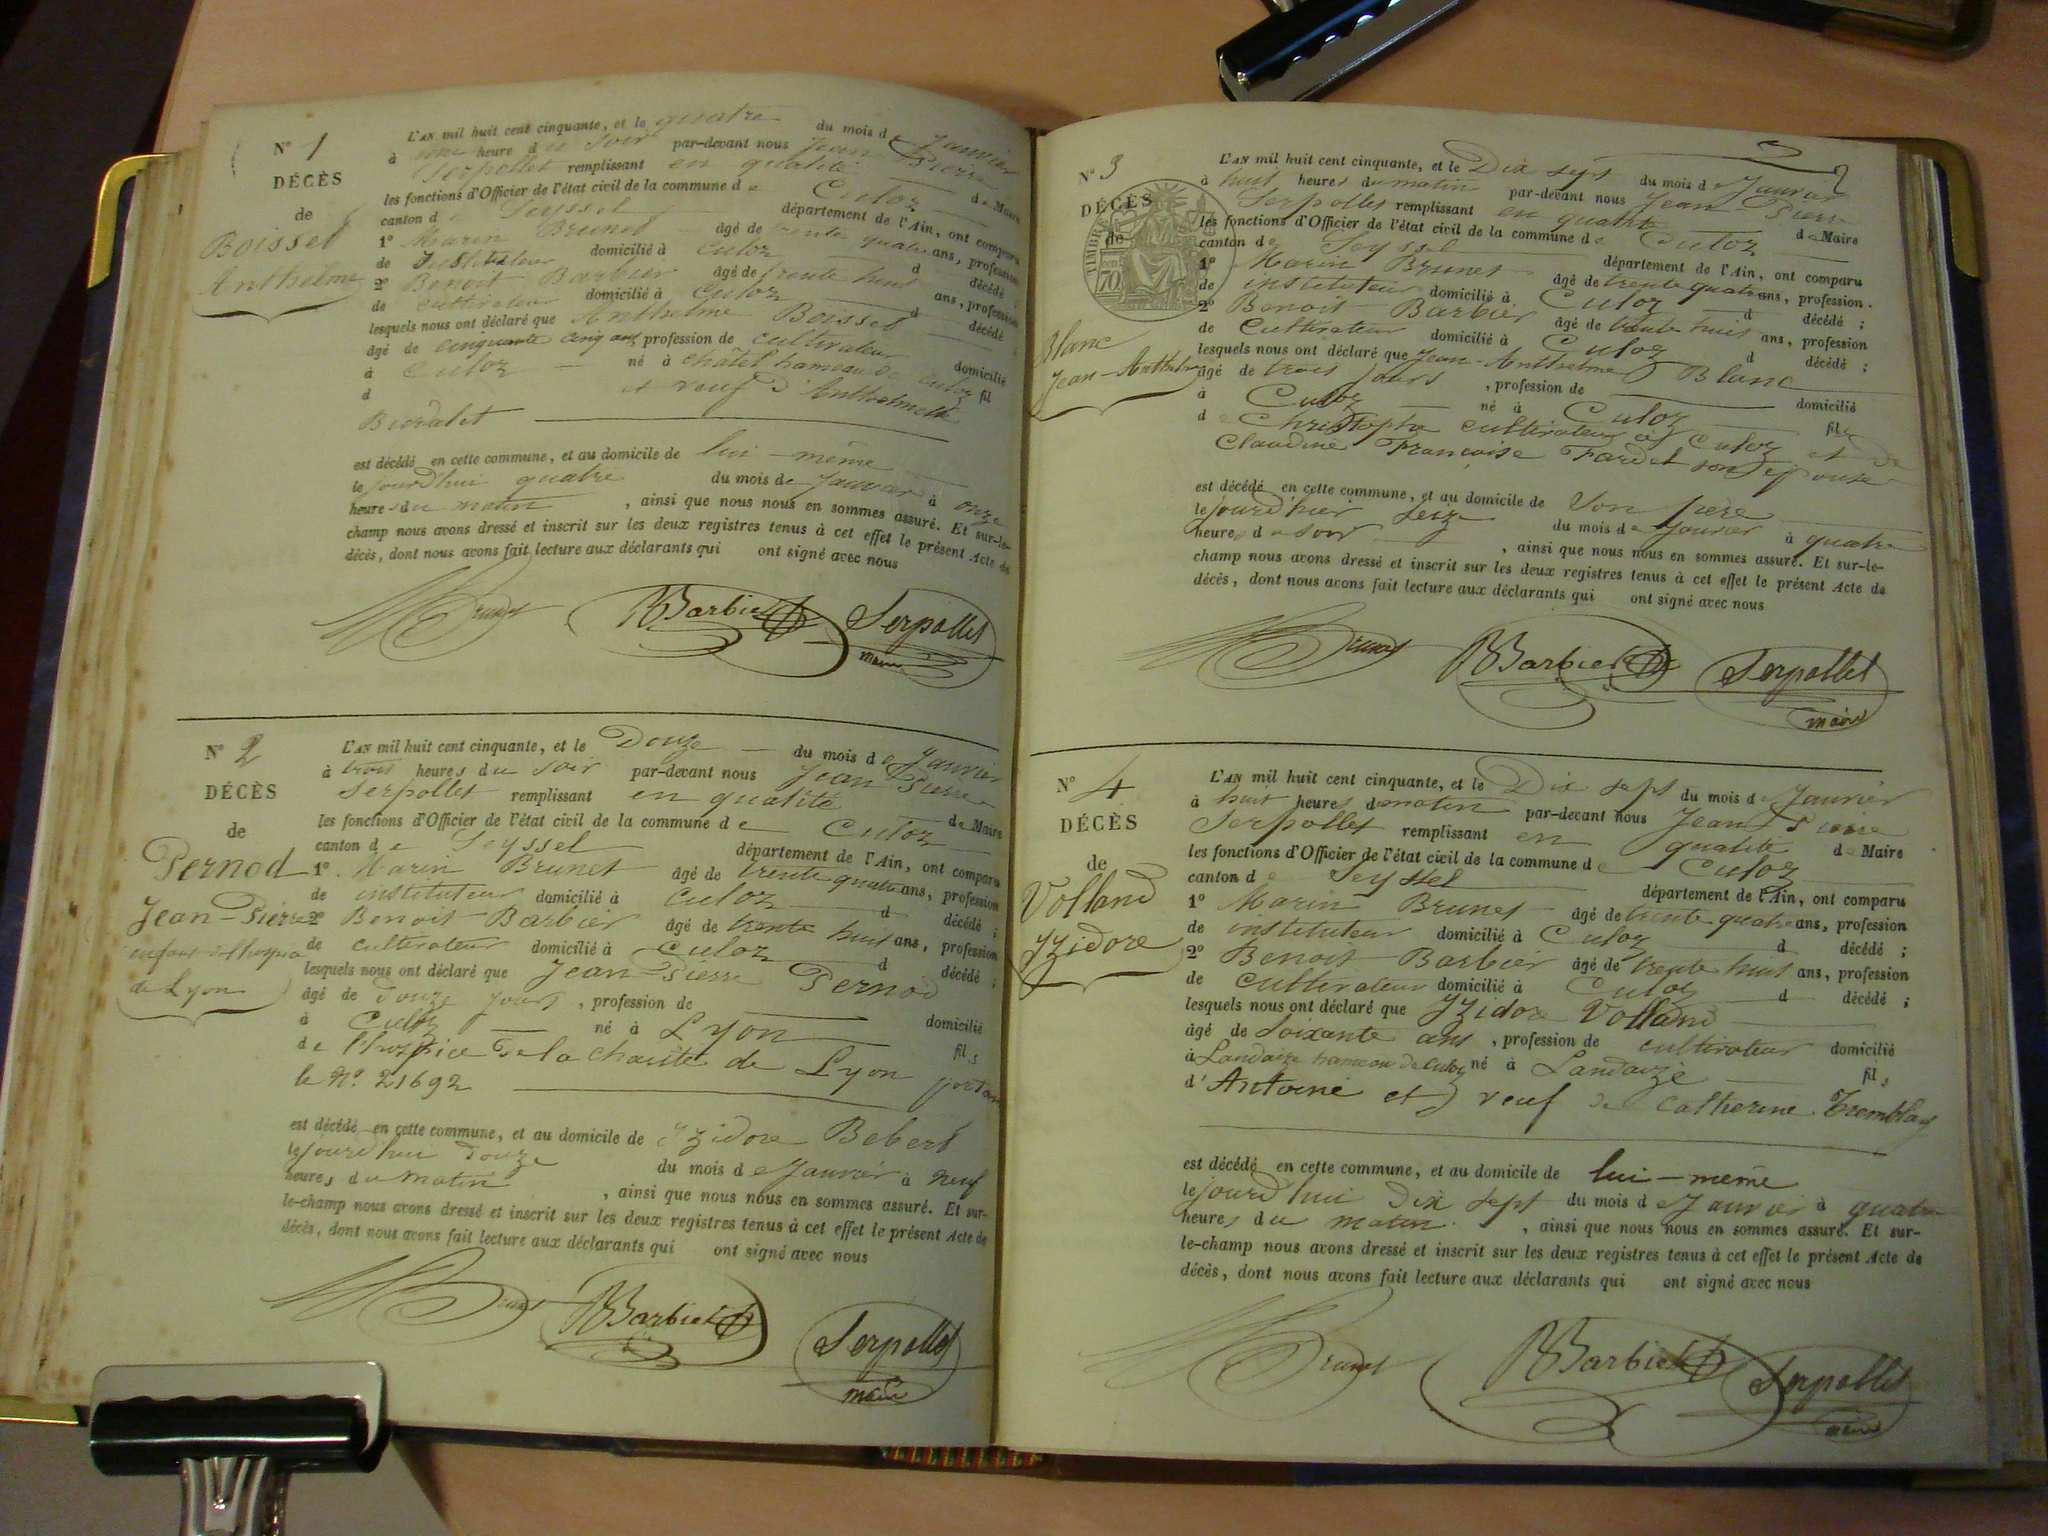 N° 1
DÉCÈS
de
Boisset
Anthelme
L'AN mil huit cent cinquante, et le quatre du mois de Janvier
à une heure du soir par-devant nous Jean Pierre
Serpollet remplissant en qualité de Maire
les fonctions d'Officier de l'état civil de la commune de Culoz
canton de Seyssel département de l'Ain, ont comparu
1° Marin Brunet âgé de trente quatre ans, profession
de Instituteur domicilié à Culoz d décédé ;
2° Benoit Barbier âgé de trente huit ans, profession
de cultivateur domicilié à Culoz d décédé ;
lesquels nous ont déclaré que Anthelme Boisset
âgé de cinquante cinq ans profession de cultivateur domicilié
à Culoz né à châtel hameau de Culoz fil
d et veuf d'Anthelmette

est décédé en cette commune, et au domicile de lui-même
le jourd'hui quatre du mois de Janvier à onze
heures du matin , ainsi que nous nous en sommes assuré. Et sur-le-
champ nous avons dressé et inscrit sur les deux registres tenus à cet effet le présent Acte de
décès, dont nous avons fait lecture aux déclarants qui ont signé avec nous
Brunet BBarbier Serpollet
maire
N° 2
DÉCÈS
de
Pernod
Jean-Pierre
de Lyon
L'AN mil huit cent cinquante, et le Douze du mois de Janvier
à trois heures du soir par-devant nous Jean Pierre
Serpollet remplissant en qualité de Maire
les fonctions d'Officier de l'état civil de la commune de Culoz
canton de Seyssel département de l'Ain, ont comparu
1° Marin Brunet âgé de trente quatre ans, profession
de instituteur domicilié à Culoz d décédé ;
2° Benoit Barbier âgé de trente huit ans, profession
de cultivateur domicilié à Culoz d décédé ;
lesquels nous ont déclaré que Jean Pierre Pernod
âgé de douze jours , profession de domicilié
à Culoz né à Lyon fils
de l'hospice de la charité de Lyon portant
le N° 21692
est décédé en cette commune, et au domicile de Yzidore Bebert
le jourd'hui douze du mois de Janvier à neuf
heures du matin , ainsi que nous nous en sommes assuré. Et sur-
le-champ nous avons dressé et inscrit sur les deux registres tenus à cet effet le présent Acte de
décès, dont nous avons fait lecture aux déclarants qui ont signé avec nous
Brunet BBarbier Serpollet
maire
N° 3
DÉCÈS
de
TIMBRE
70
Blanc
Jean-Anthelme
L'AN mil huit cent cinquante, et le Dix sept du mois de Janvier
à huit heures du matin par-devant nous Jean-Pierre
Serpollet remplissant en qualité de Maire
les fonctions d'Officier de l'état civil de la commune de Culoz
canton de Seyssel département de l'Ain, ont comparu
1° Marin Brunet âgé de trente quatre ans, profession.
de instituteur domicilié à Culoz d décédé ;
2° Benoit Barbier âgé de trente huit ans, profession
de Cultivateur domicilié à Culoz d décédé ;
lesquels nous ont déclaré que Jean-Anthelme Blanc
âgé de trois jours , profession de domicilié
à Culoz né à Culoz fils
de Christophe cultivateur à Culoz et de
Claudine Françoise Pardet son épouse
est décédé en cette commune, et au domicile de Son père
le jourd'hier seize du mois de Janvier à quatre
heures du soir , ainsi que nous nous en sommes assuré. Et sur-le-
champ nous avons dressé et inscrit sur les deux registres tenus à cet effet le présent Acte de
décès, dont nous avons fait lecture aux déclarants qui ont signé avec nous
Brunet BBarbier Serpollet
maire
N° 4
DÉCÈS
de
Volland
Yzidore
L'AN mil huit cent cinquante, et le Dix sept du mois de Janvier
à huit heures du matin par-devant nous Jean Pierre
Serpollet remplissant en qualité de Maire
les fonctions d'Officier de l'état civil de la commune de Culoz
canton de Seyssel département de l'Ain, ont comparu
1° Marin Brunet âgé de trente quatre ans, profession
de instituteur domicilié à Culoz d décédé ;
2° Benoit Barbier âgé de trente huit ans, profession
de cultivateur domicilié à Culoz d décédé ;
lesquels nous ont déclaré que Yzidore Volland
âgé de Soixante ans , profession de cultivateur domicilié
à Landaize hameau de Culoz né à Landaize fils
d'Antoine et veuf de Catherine Tremblay
est décédé en cette commune, et au domicile de lui-même
le jourd'hui dix sept du mois de Janvier à quatre
heures du matin. , ainsi que nous nous en sommes assuré. Et sur-
le-champ nous avons dressé et inscrit sur les deux registres tenus à cet effet le présent Acte de
décès, dont nous avons fait lecture aux déclarants qui ont signé avec nous
Brunet BBarbier Serpollet
maire